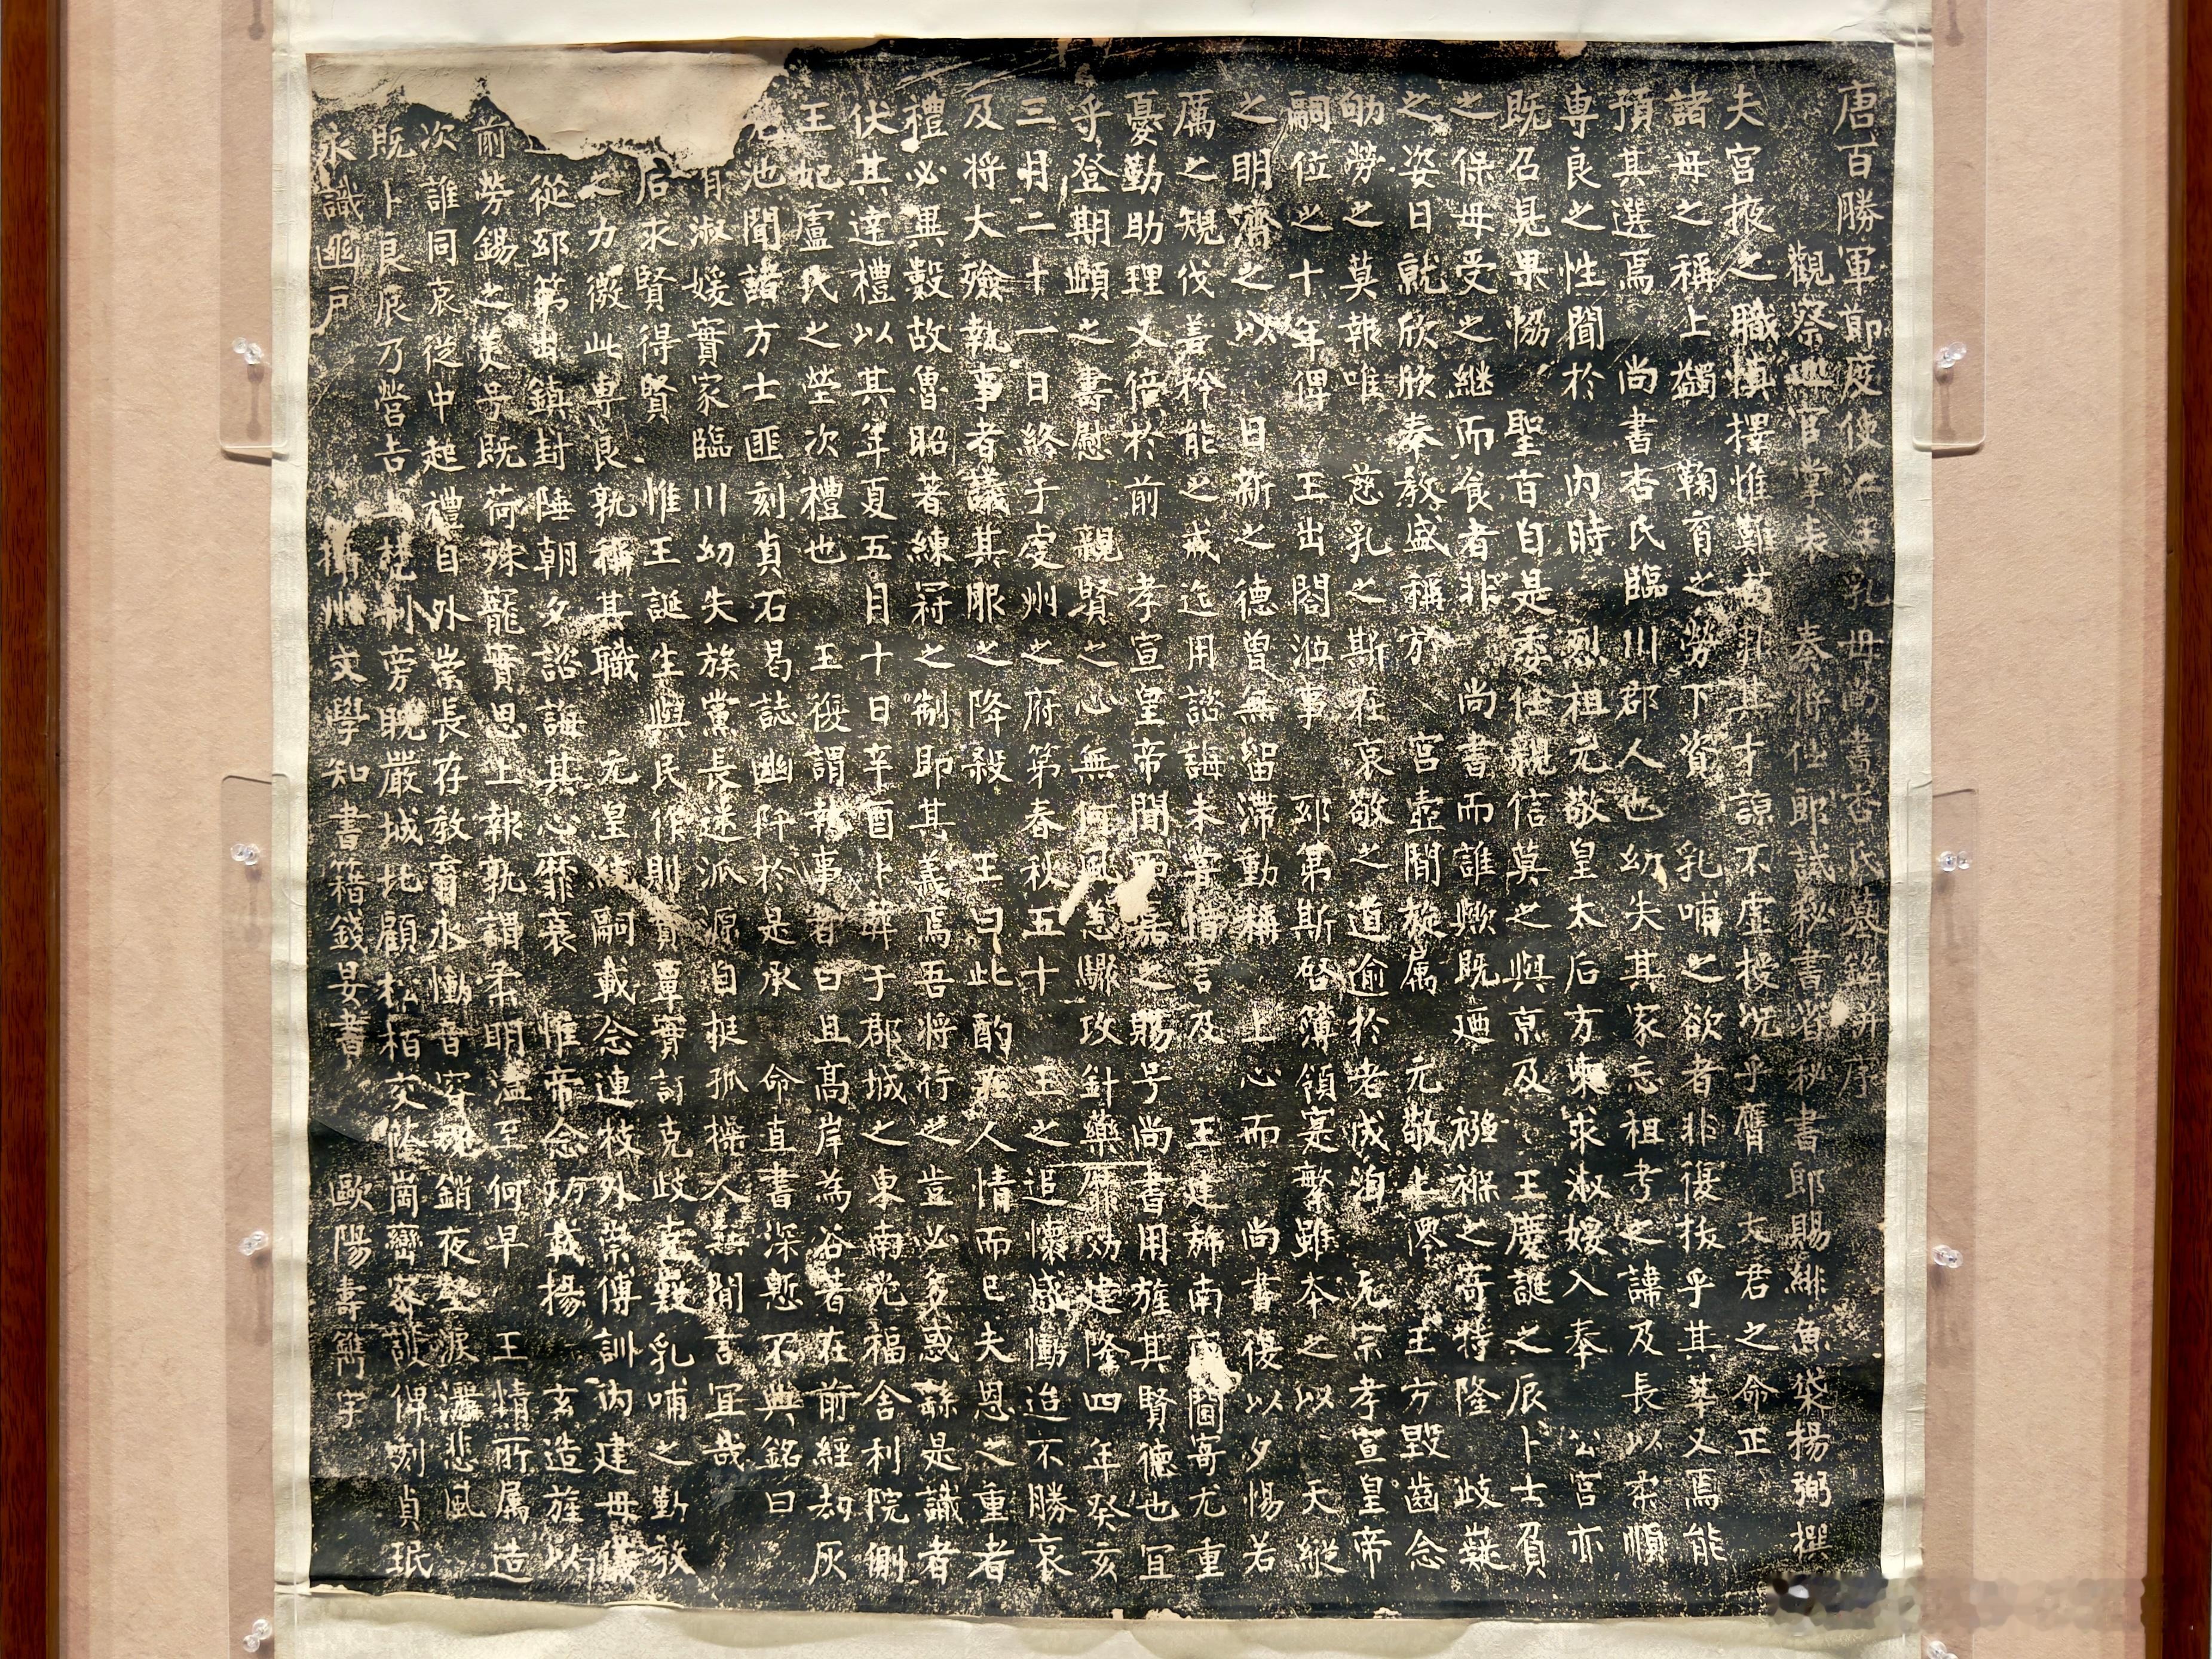 唐百勝軍節度使江王乳母尚書杏氏墓銘并序
觀察巡官掌表奏將仕郎試秘書省秘書郎賜緋魚袋楊弼撰
夫宮掖之職慎擇惟難苟非其才諒不虛授況乎膺大君之命正
諸母之稱上蠲鞠育之勞下資乳哺之欲者非復拔乎其萃又焉能
預其選焉尚書杏氏臨川郡人也幼失其家忘祖考之諱及長以柔順
專良之性聞於內時烈祖元敬皇太后方東求淑媛入奉公宮亦
既召見果協聖旨自是委任親信莫之與京及王慶誕之辰卜士負
之保母受之継而食者非尚書而誰歟既迺襁褓之寄特隆歧嶷
之姿日就欣欣奉教盛稱於宮壼間旋属元敬上僊王方毀齒念
劬勞之莫報唯慈乳之斯在哀敬之道逾於老成洎元宗孝宣皇帝
嗣位之十年俾王出閤涖事邳第斯啓簿領寔繁雖本之以天縱
之明濟之以日新之德曾無留滯動稱上心而尚書復以夕惕若
厲之規伐善矜能之戒迨用諮誨未嘗借言及王建旆南康閫寄尤重
憂勤助理又倍於前孝宣皇帝聞而嘉之賜号尚書用旌其賢德也宜
乎登期頤之書慰親賢之心無何風恙驟攻針藥靡効建隆四年癸亥
三月二十一日終于虔州之府第春秋五十王之追懷感慟迨不勝哀
及将大殮執事者議其服之降殺王曰此酌在人情而已夫恩之重者
禮必異數故魯昭著練冠之制即其義焉吾将行之豈必多惑繇是議者
伏其達禮以其年夏五月十日辛酉卜葬于郡城之東南光福舍利院側
王妃盧氏之塋次禮也王復謂執事者曰且高岸為谷著在前經劫灰
池聞諸方士匪刻貞石曷誌幽阡於是承命直書深慙不典銘曰
有淑媛實家臨川幼失族黨長迷派源自挺孤操人無間言宜哉
后求賢得賢惟王誕生與民作則實覃實訏克歧克嶷乳哺之勤教
之力微此專良孰稱其職元皇続嗣載念連枝外崇傅訓內建母儀
従邳第出鎮封陲朝夕諮誨其心靡衰惟帝念功載揚玄造旌以
前勞錫之美号既荷殊寵實思上報孰謂柔明溘至何早王情所属造
次誰同哀従中起禮自外崇長存教育永慟音容魂銷夜壑淚灑悲風
既卜良辰乃營吉土梵刹旁眺嚴城北顧松栢交陰崗巒密護俾刻貞珉
永識幽戸衡州文學知書籍錢晏書歐陽壽鐫字